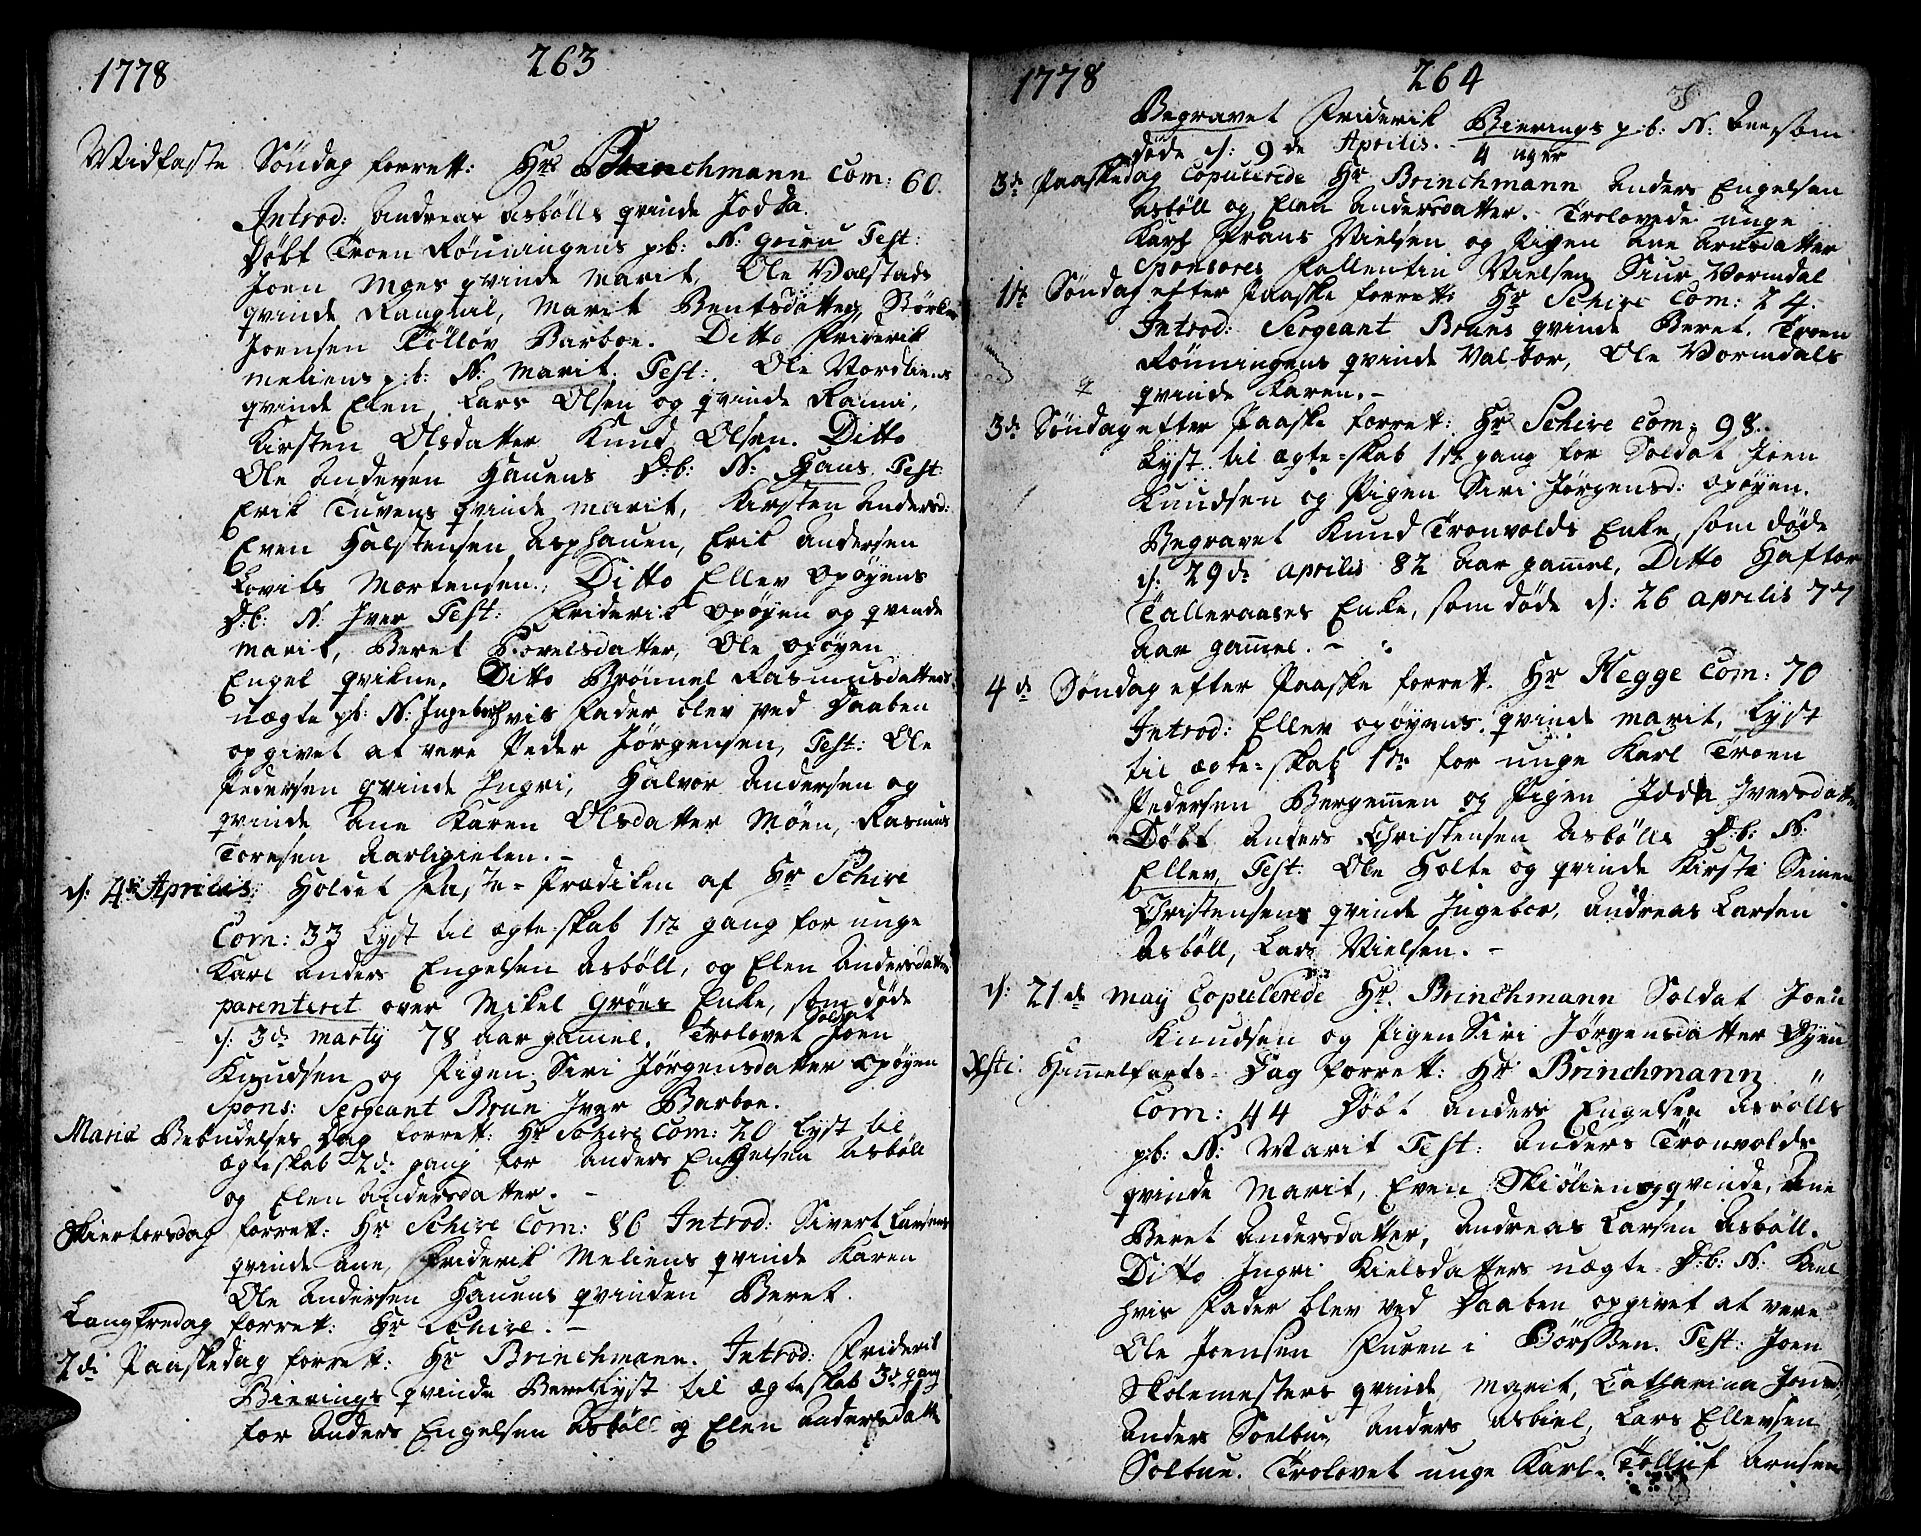 1778 263
Midfaste Söndag forrett: Hr Brinchmann Com: 60.
Introd: Andreas Asbölls qvinde Jodda.
Döbt Troen Rönningens p:b: N: Guru Test:
Joen Moes qvinde Marit, Ole Walstads
qvinde Rangtal, Marit Bentsdatter, Störker
Joensen Tölløv Barboe. Ditto Friderik
Meliens p:b: N: Marit. Test: Ole Nordtiens
qvinde Elen, Lars Olsen og qvinde Rami,
Kirsten Olsdatter Knud Olsen. Ditto
Ole Andersen Hauens D:b: N: Hans Test:
Erik Tuvens qvinde Marit, Kirsten Andersd:
Even Halstensen Asphauen, Erik Andersen
Lovits Mortensen. Ditto Ellev Opøyens
D:b: N: Iver Test: Friderik Opøyen og qvinde
Marit, Beret Povelsdatter, Ole Opøyen
Engel qvikne. Ditto Brönnel Rasmusdatters
uægte p:b: N: Ingebor hvis Fader blev ved Daaben
opgivet at være Peder Jörgensen, Test: Ole
Pedersen qvinde Ingri, Halvor Andersen og
qvinde Ane Karen Olsdatter Möen, Rasmus
Toresen Aarligielen. -
d: 4de Aprilis: Holdet Faste-Prædiken af Hr Schive
Com: 33 Lyst til ægteskab 1ste gang for unge
Karl Anders Engelsen Asböll, og Elen Andersdatter
parenteret over Mikel Gröes Enke, som döde
d: 3de Marty 78 aar gamel. Trolovet Soldat Joen
Knudsen og Pigen Siri Jörgensdatter Opöyen
Spons: Sergeant Brun Iver Barboe.
Mariæ Bebudelses Dag forrett: Hr Schive Com: 20 Lyst til
ægteskab 2de gang for Anders Engelsen Asböll
og Elen Andersdatter. -
Skiertorsdag forrett: Hr Schive Com: 86 Introd: Sivert Larsens
qvinde Ane, Friderik Meliens qvinde Karen
Ole Andersen Hauens qvinden Beret.
Langfredag forrett: Hr Schive. -
2de Paaskedag forrett: Hr Brinchmann. Introd: Friderik
Bierings qvinde Beret Lyst til ægteskab 3de gang
for Anders Engelsen Asböll og Elen Andersdatter
1778 264
Begravet Friderik Bierings p:b: N: Ane, som
döde d: 9de Aprilis. 4 uger
3de Paaskedag Copulerede Hr Brinchmann Anders Engelsen
Asböll og Elen Andersdatter. Trolovede unge
Karl Frans Nielsen og Pigen Ane Arnsdatter
Sponsores Fallentin Nielsen Siur Wormdal
1ste Söndag efter Paaske forrett: Hr Schive Com: 24.
Introd: Sergeant Bruns qvinde Beret. Troen
Rönningens qvinde Valbor, Ole Wormdals
qvinde Karen. -
3de Söndag efter Paaske forrett: Hr Schive Com: 98.
Lyst til ægte-skab 1ste gang for Soldat Joen
Knudsen og Pigen Siri Jörgensd: Opöyen.
Begravet Knud Tronvolds Enke, som döde
d: 29de Aprilis 82 Aar gamel, Ditto Haftor
Talleraases Enke, som döde d: 26 Aprilis 77
Aar gamel. -
4de Söndag efter Paaske forret. Hr Hegge Com: 70
Introd: Ellev Opöyens qvinde Marit, Lyst
til ægte-skab 1ste for unge Karl Troen
Pedersen Bergemen og Pigen Jodda Iversdatter
Döbt Anders Christensen Asbölls D:b: N:
Ellev, Test: Ole Holte og qvinde Kirsti Simen
Christensens qvinde Ingebor, Andreas Larsen
Asböll, Lars Nielsen. -
d: 21de May Copulerede Hr. Brinchmann Soldat Joen
Knudsen og Pigen Siri Jörgensdatter Opöyen
Xsti Himmelfarts-Dag forrett: Hr Brinchmann
Com: 44 Döbt Anders Engelsen Asbölls
p:b: N: Marit Test: Anders Tronvolds
qvinde Marit, Even Skiölien og qvinde, Ane
Beret Andersdatter, Andreas Larsen Asböll.
Ditto Ingri Kielsdatters uægte D:b: N: Karl
hvis Fader blev ved Daaben opgivet at være
Ole Joensen Furen i Börssen. Test: Joen
Skolemesters qvinde Marit, Catharina Jonsd:
Anders Soelbue Anders Asbiel, Lars Ellevsen
Solbue. Trolovet unge Karl Tölluf Arnsen